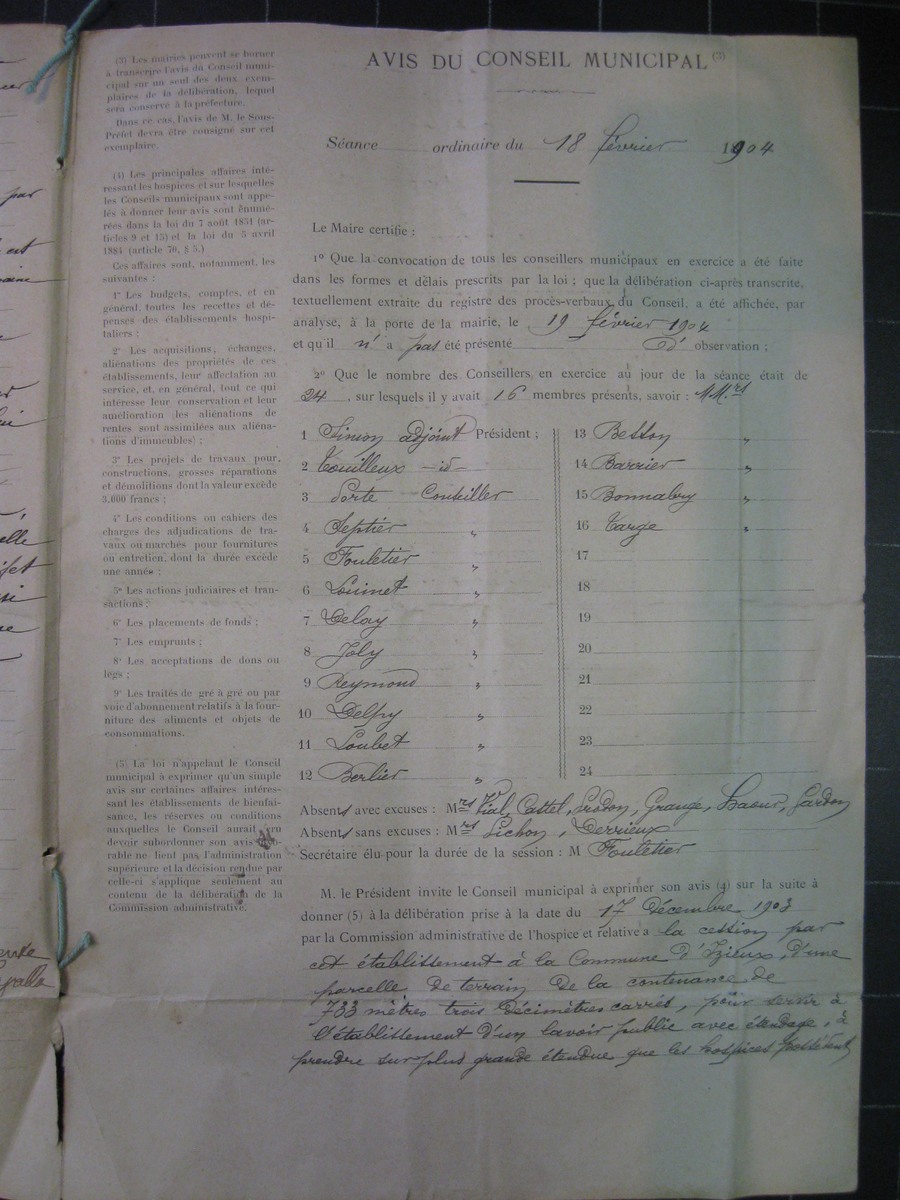 par
est
elle
(3) Les mairies peuvent se borner
à transcrire l'avis du Conseil muni-
cipal sur un seul des deux exem-
plaires de la délibération, lequel
sera conservé à la préfecture.
Dans ce cas, l'avis de M. le Sous-
Préfet devra être consigné sur cet
exemplaire.
(4) Les principales affaires inté-
ressant les hospices et sur lesquelles
les Conseils municipaux sont appe-
lés à donner leur avis sont énumé-
rées dans la loi du 7 août 1851 (ar-
ticles 9 et 15) et la loi du 5 avril
1884 (article 70, § 5.)
Ces affaires sont, notamment, les
suivantes :
1° Les budgets, comptes, et en
général, toutes les recettes et dé-
penses des établissements hospi-
taliers ;
2° Les acquisitions, échanges,
aliénations des propriétés de ces
établissements, leur affectation au
service, et, en général, tout ce qui
intéresse leur conservation et leur
amélioration les aliénations de
rentes sont assimilées aux aliéna-
tions d'immeubles) ;
3° Les projets de travaux pour,
constructions, grosses réparations
et démolitions dont la valeur excède
3.000 francs ;
4° Les conditions ou cahiers des
charges des adjudications de tra-
vaux ou marchés pour fournitures
ou entretien, dont la durée excède
une année ;
5° Les actions judiciaires et tran-
sactions ;
6° Les placements de fonds ;
7° Les emprunts ;
8° Les acceptations de dons ou
legs ;
9° Les traités de gré à gré ou par
voie d'abonnement relatifs à la four-
niture des aliments et objets de
consommations.
(5) La loi n'appelant le Conseil
municipal à exprimer qu'un simple
avis sur certaines affaires intéres-
sant les établissements de bienfai-
sance, les réserves ou conditions
auxquelles le Conseil aurait cru
devoir subordonner son avis favo-
rable ne lient pas l'administration
supérieure et la décision rendue par
celle-ci s'applique seulement au
contenu de la délibération de la
Commission administrative.
AVIS DU CONSEIL MUNICIPAL (3)
Séance ordinaire du 18 février 1904
Le Maire certifie :
1° Que la convocation de tous les conseillers municipaux en exercice a été faite
dans les formes et délais prescrits par la loi ; que la délibération ci-après transcrite,
textuellement extraite du registre des procès-verbaux du Conseil, a été affichée, par
analyse, à la porte de la mairie, le 19 février 1904
et qu'il n' a pas été présenté d' observation ;
2° Que le nombre des Conseillers en exercice au jour de la séance était de
24, sur lesquels il y avait 16 membres présents, savoir : MM.rs
1 Simon adjoint Président ;
2 Touilleux -id-
3 Porte Conseiller
4 Septier "
5 Fouletier "
6 "
7 Delay "
8 Joly "
9 Reymond "
10 Delpy "
11 Loubet "
12 Berlier "
13 Besson "
14 Barrier "
15 Bonnabry "
16 Targe "
17
18
19
20
21
22
23
24
Absents avec excuses : Mrs Vial, Cattel, Grange, Gardon
Absents sans excuses : Mrs Pichon, Terrieux
Secrétaire élu pour la durée de la session : M Fouletier
M. le Président invite le Conseil municipal à exprimer son avis (4) sur la suite à
donner (5) à la délibération prise à la date du 17 Décembre 1903
par la Commission administrative de l'hospice et relative a la cession par
cet établissement à la Commune d'Izieux, d'une
parcelle de terrain de la contenance de
733 mètres trois décimètres carrés, pour servir à
l'établissement d'un lavoir public avec étendage, à
prendre sur plus grande étendue que les hospices possèdent